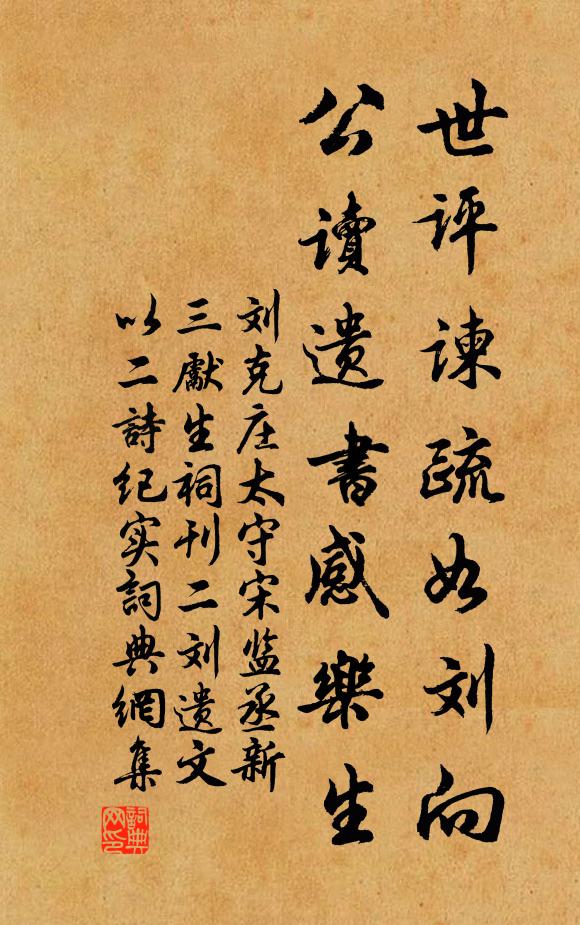 世评谏疏如刘向
公读遗书感樂生
刘克庄太守宋监丞新
三献生祠刊二刘遗文
以二詩纪实詞典網集
詞典网印